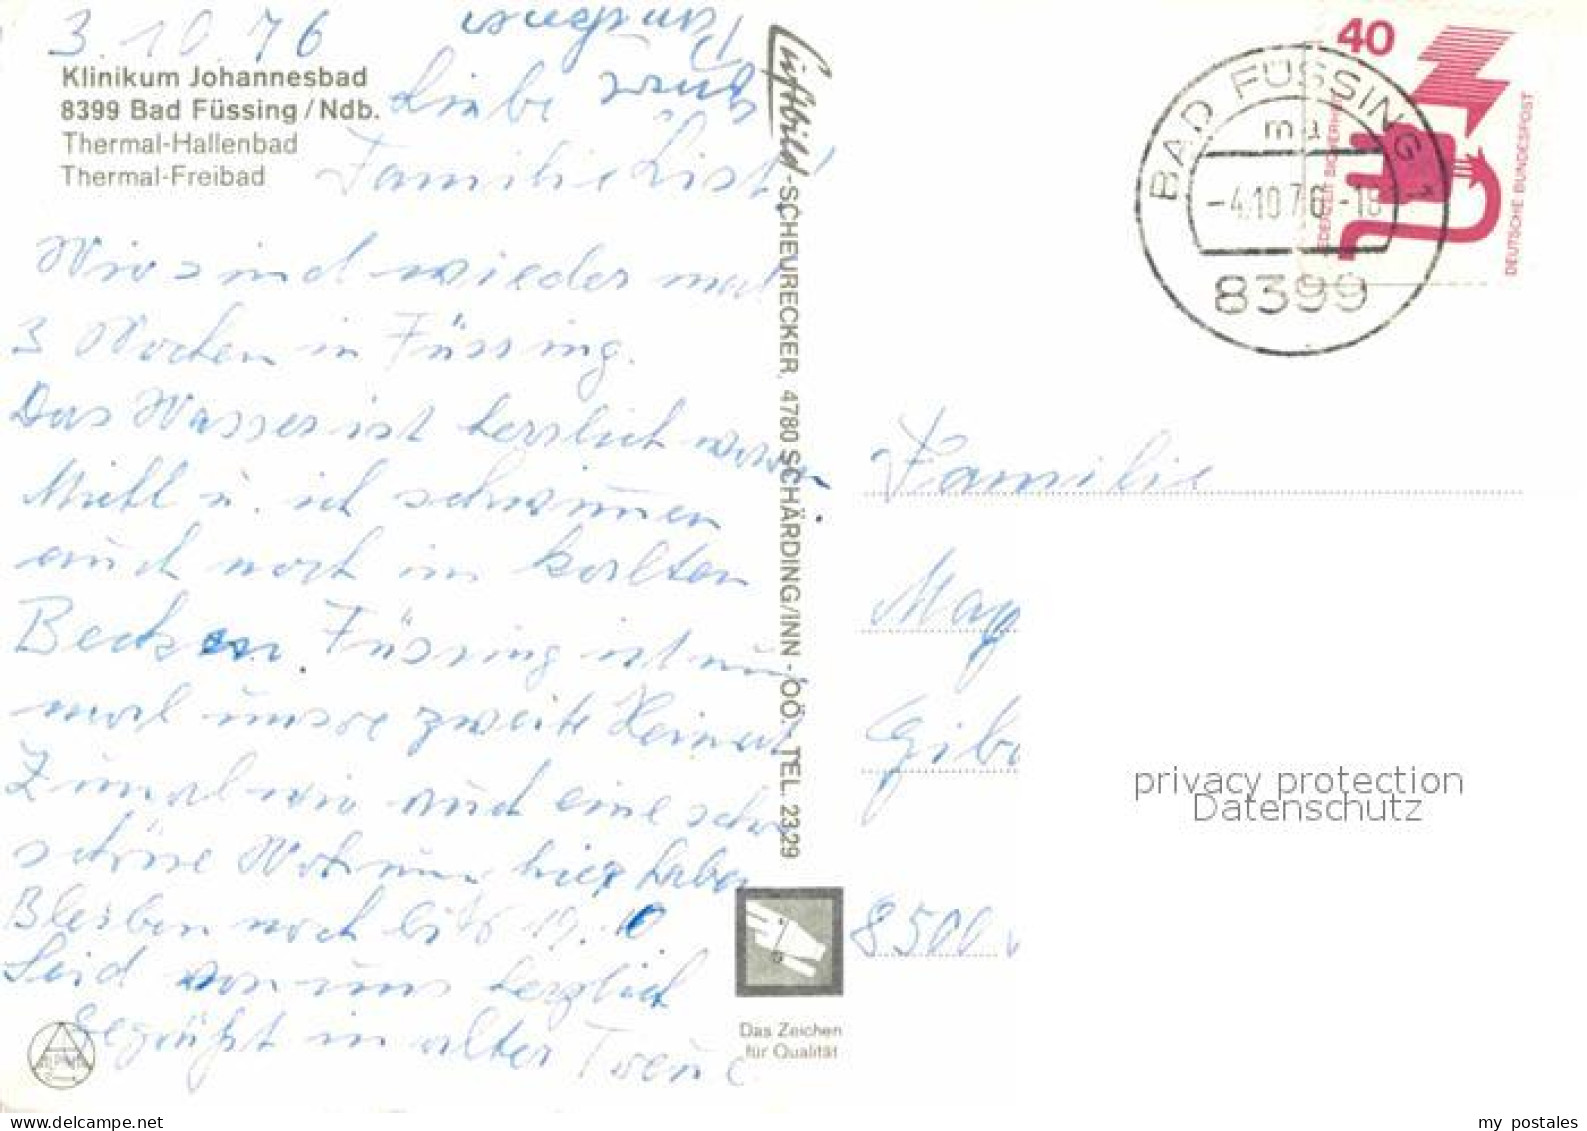 3.10.76
Klinikum Johannesbad
8399 Bad Füssing/Ndb.
Thermal-Hallenbad
Thermal-Freibad
Liebe
Familie List!
Wir sind wieder mal
3 Wochen in Füssing.
Das Wasser ist herrlich warm
u. ich schwimmen
auch noch im kalten
Becken. Füssing ist nun
mal unsre zweite Heimat
Zumal wir auch eine
schöne Wohnung hier haben
Bleiben noch bis 19.10
Seid von uns herzlich
gegrüßt in alter Treue
und
Luftbild-SCHEURECKER, 4780 SCHÄRDING/INN - OÖ. TEL. 2329
Das Zeichen
für Qualität
ALPINA
40
JEDERZEIT SICHERHEIT
DEUTSCHE BUNDESPOST
BAD FÜSSING 1
ma
-4.10.76-18
8399
Familie
Mag
Gib
8500
privacy protection
Datenschutz
my postales